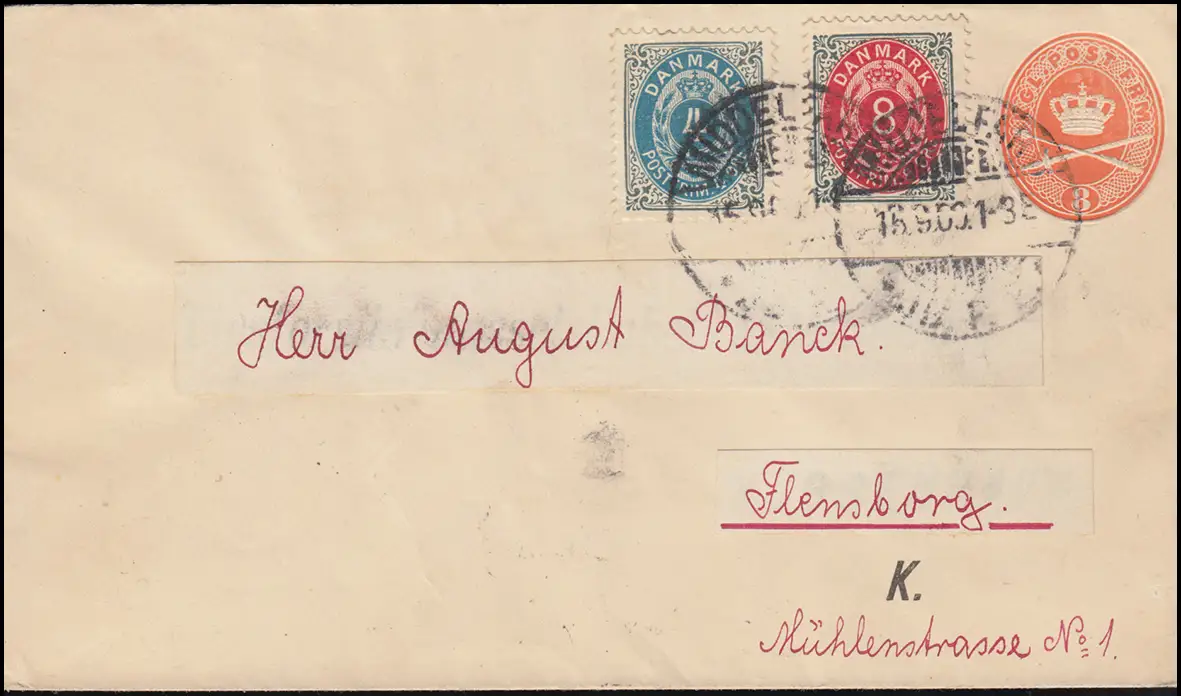 DANMARK
4
DANMARK
8
KGL. POST FRM.
8
16.9.
Herr August Banck.
Flensborg.
K.
Mühlenstrasse No 1.